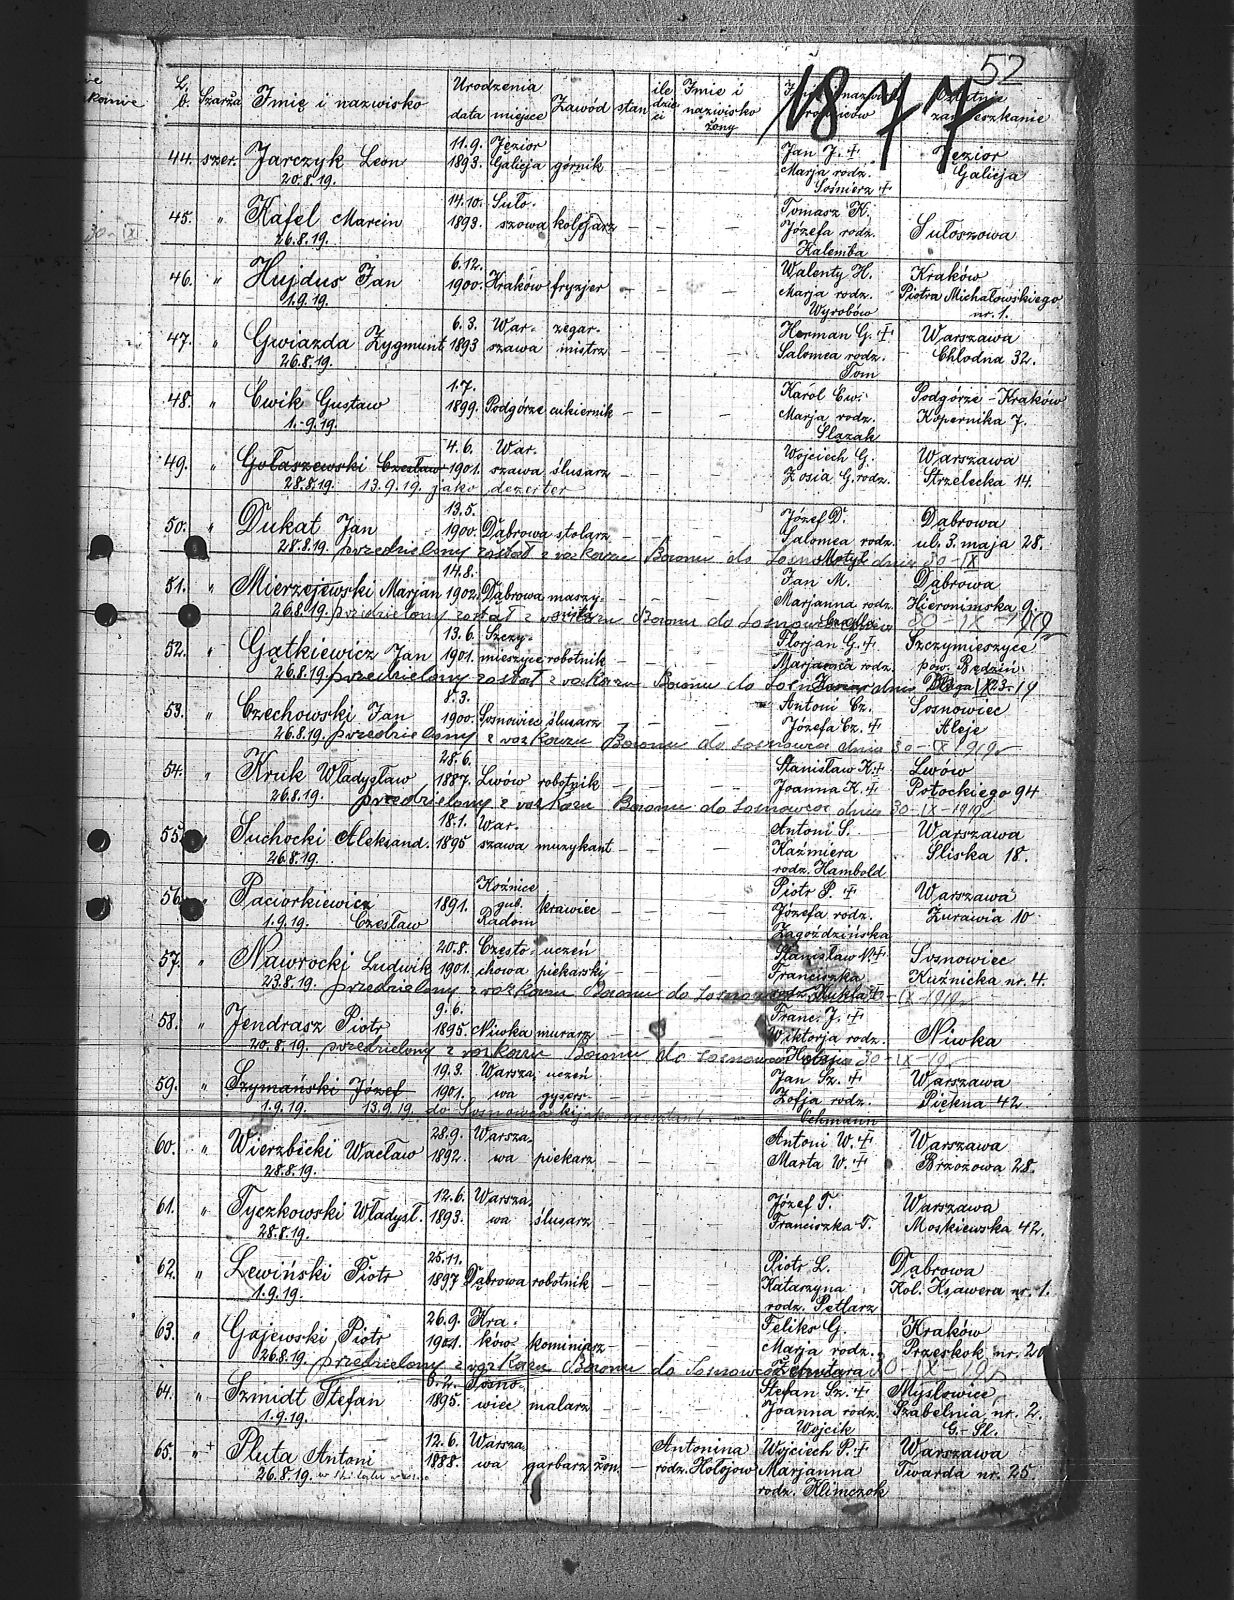 52
1877
L. b. Szarża Imię i nazwisko Urodzenia data miejsce Zawód stan ile dzieci Imie i nazwisko żony zamieszkanie
44. szer. Jarczyk Leon 11.9. 1893. Jęzior Galicja górnik Jan J. + Jęzior
20.8.19. Marja rodz. Sośnierz + Galicja
45. " Kafel Marcin 14.10. 1893. Sułoszowa kolejarz – – – Tomasz K. Sułoszowa
26.8.19. Józefa rodz. Kalemba
46. " Hujdus Jan 6.12. 1900. Kraków fryzjer – – – Walenty H. Kraków
1.9.19. Marja rodz. Wyrobów Piotra Michałowskiego nr. 1.
47. " Gwiazda Zygmunt 6.3. 1893 Warszawa zegarmistrz – – – Herman G. + Warszawa
26.8.19. Salomea rodz. Tom Chłodna 32.
48. " Ćwik Gustaw 1.7. 1899. Podgórze cukiernik – – – Karol Ćw. Podgórze - Kraków
1.-9.19. Marja rodz. Ślązak Kopernika 7.
49. " Gołaszewski Czesław 4.6. 1901. Warszawa ślusarz – – – Wojciech G. Warszawa
28.8.19. 13.9.19. jako dezerter Zosia G. rodz. Strzelecka 14.
50. " Dukat Jan 13.5. 1900. Dąbrowa stolarz – – – Józef D. Dąbrowa
28.8.19. przedzielony został z rozkazu Baonu do Sosnowca dnia 30-IX Salomea rodz. Motyl ul. 3. maja 28.
51. " Mierzejewski Marjan 14.8. 1902. Dąbrowa maszynista – – – Jan M. Dąbrowa
26.8.19. przedzielony został z rozkazu Baonu do Sosnowca 30-IX-1919 Marjanna rodz. Hieronimska 9.
52. " Gątkiewicz Jan 13.6. 1901. Szczymieszyce robotnik – – – Florjan G. + Szczymieszyce
26.8.19. przedzielony został z rozkazu Baonu do dnia Marjanna rodz. pow. Będzin
53. " Czechowski Jan 8.3. 1900. Sosnowiec ślusarz – – – Antoni Cz. Sosnowiec
26.8.19. przedzielony z rozkazu Baonu do Sosnowca dnia 30-IX 1919 Józefa Cz. + Aleje
54. " Kruk Władysław 28.6. 1887. Lwów robotnik – – – Stanisław K. + Lwów
26.8.19. przedzielony z rozkazu Baonu do Sosnowca dnia 30-IX-1919 Joanna K. + Potockiego 94
55. " Suchocki Aleksand. 18.1. 1895 Warszawa muzykant – – – Antoni S. Warszawa
26.8.19. Kaźmiera rodz. Hambold Śliska 18.
56. " Paciorkiewicz Czesław 1891. Koźnice gub. Radom krawiec – – – Piotr P. + Warszawa
1.9.19. Józefa rodz. Zagoździńska Żurawia 10
57. " Nawrocki Ludwik 20.8. 1901. Częstochowa uczeń piekarski – – – Stanisław N. + Sosnowiec
23.8.19. przedzielony z rozkazu Baonu do Sosnowca Franciszka rodz. Kukla + Kuźnicka nr. 4.
58. " Jendrasz Piotr 9.6. 1895. Niwka murarz – – – Franc. J. + Niwka
20.8.19. przedzielony z rozkazu Baonu do Sosnowca 30-IX-19 Wiktorja rodz.
59. " Szymański Józef 19.3. 1901. Warszawa uczeń – – – Jan Sz. + Warszawa
1.9.19. 13.9.19. do Sosnowca Zofja rodz. Lehmann Piękna 42
60. " Wierzbicki Wacław 28.9. 1892. Warszawa piekarz – – – Antoni W. + Warszawa
28.8.19. Marta W. + Brzozowa 28.
61. " Tyczkowski Władysł. 12.6. 1893. Warszawa ślusarz – – – Józef T. Warszawa
28.8.19. Franciszka T. Moskiewska 42.
62. " Lewiński Piotr 25.11. 1897 Dąbrowa robotnik – – Piotr L. Dąbrowa
1.9.19. Katarzyna rodz. Petlarz Kol. Ksawera nr. 1.
63. " Gajewski Piotr 26.9. 1901. Kraków kominiarz – – – Feliks G. Kraków
26.8.19. przedzielony z rozkazu Baonu do Sosnowca 30-IX-19 Marja rodz. Przeskok nr. 20
64. " Szmidt Stefan 6.2. 1895. Sosnowiec malarz – – – Stefan Sz. + Mysłowice
1.9.19. Joanna rodz. Wojcik Szabelnia nr. 2. G.-Śl.
65. " + Pluta Antoni 12.6. 1888. Warszawa garbarz żon. – Antonina rodz. Hołojow Wojciech P. + Warszawa
26.8.19. Marjanna rodz. Klimczok Twarda nr. 25.